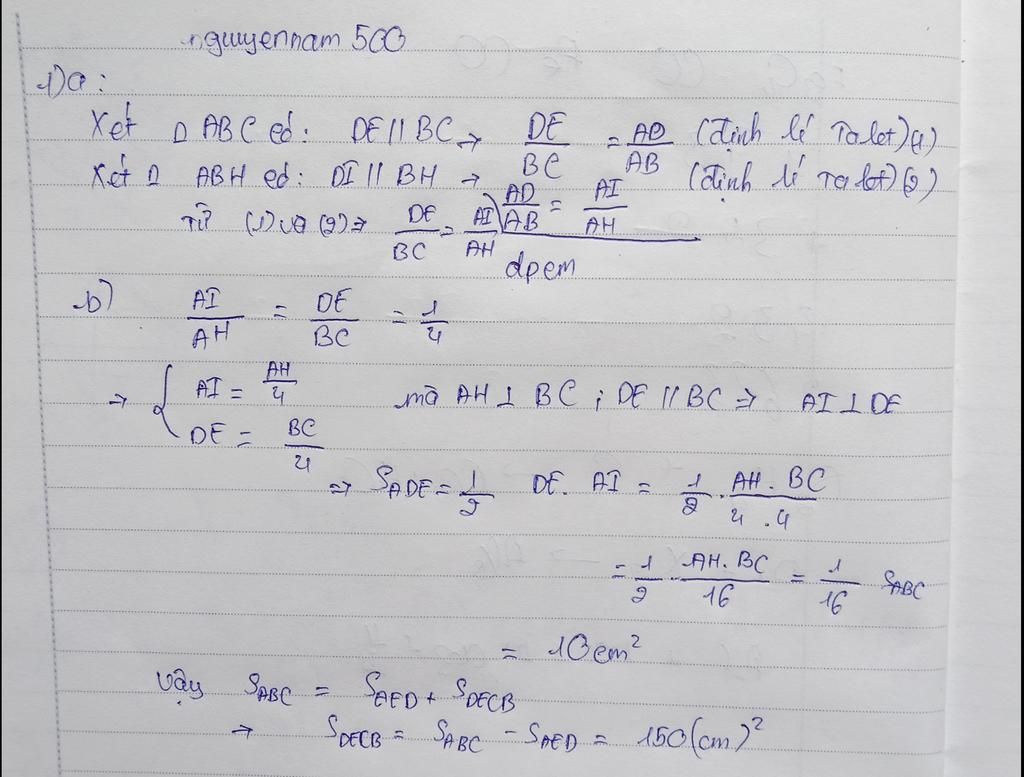 nguyennam 500
1)a:
Xét Δ ABC có: DE // BC → DE/BC = AD/AB (định lí Talet)(1)
Xét Δ ABH có: DI // BH → AD/AB = AI/AH (định lí Talet)(2)
Từ (1) và (2) ⇒ DE/BC = AI/AH
dpcm
b) AI/AH = DE/BC = 1/4
→ { AI = AH/4 mà AH ⊥ BC ; DE // BC ⇒ AI ⊥ DE
DE = BC/4
⇒ S_ADE = 1/2 DE. AI = 1/2 . AH . BC/4 . 4
= 1/2 . AH. BC/16 = 1/16 S_ABC
= 10cm²
Vậy S_ABC = S_AED + S_DECB
→ S_DECB = S_ABC - S_AED = 150(cm)²